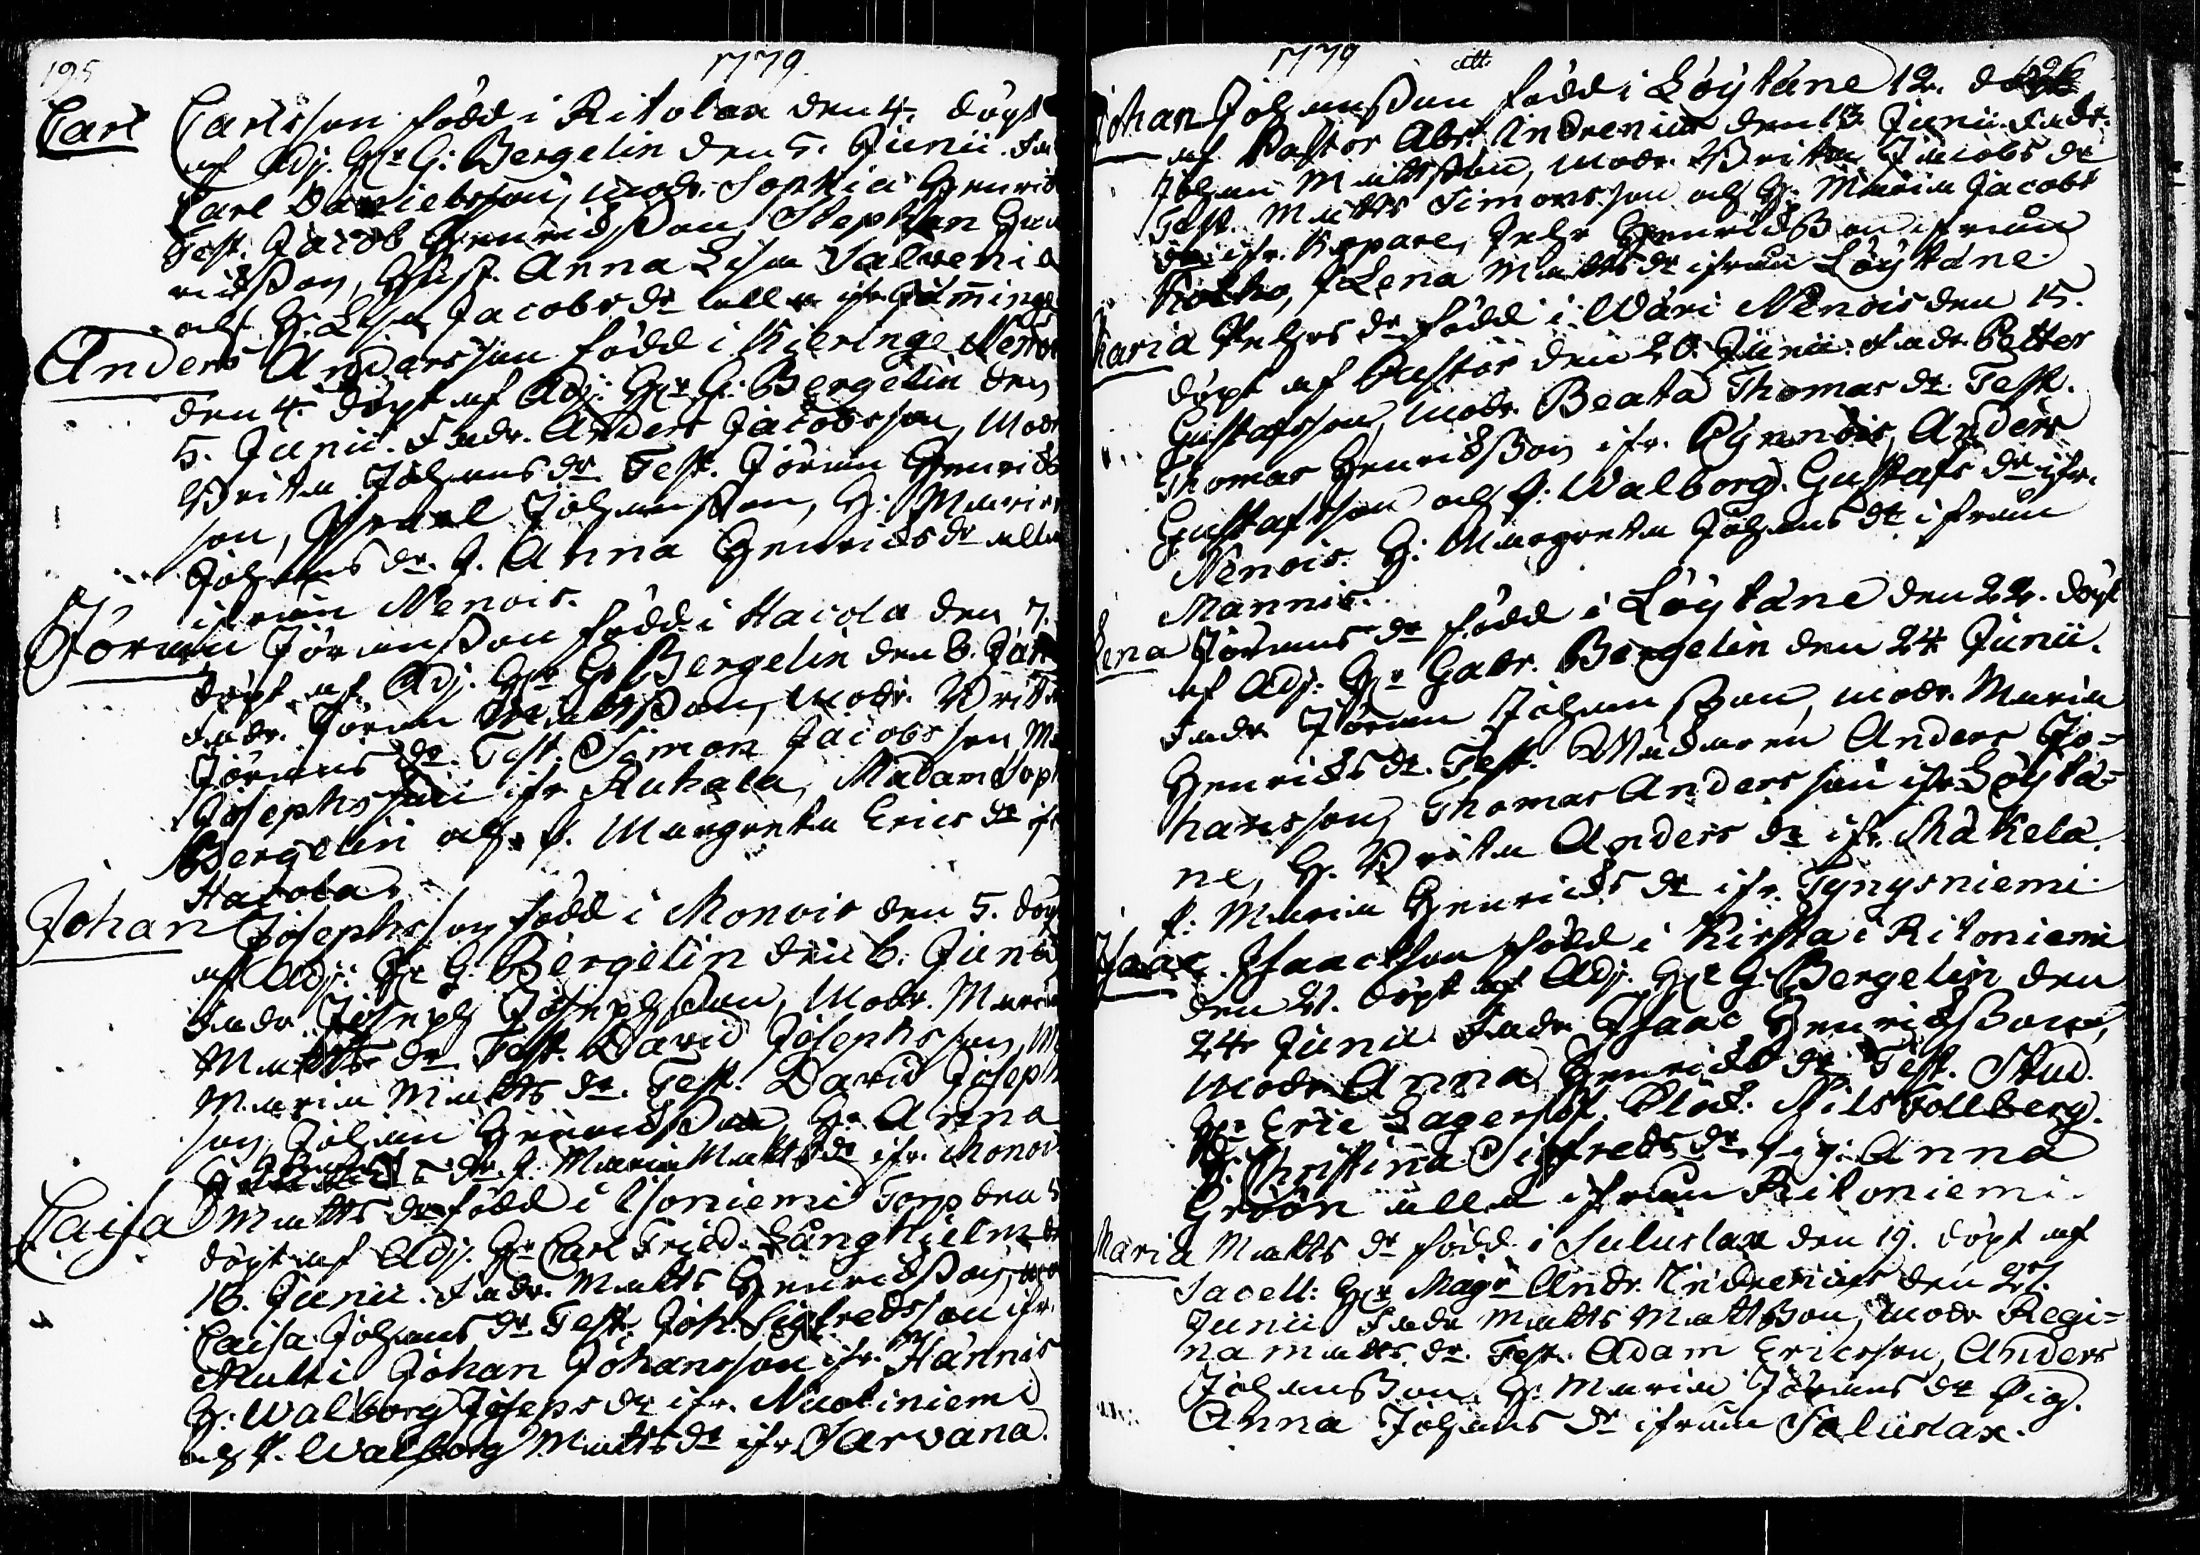 195
1779.
Carl Carlsson född i Ritolax den 4. döpt
af Adj. Hr G: Bergelin den 5. Junii. Fa
Carl Danielsson, Modr. Sophia Henrics
Test. Jacob Henricsson, Stephan Hen
ricsson, Hust. Anna Lisa Salvenia
och H. Lisa Jacobs dr alla ifr.
Anders Andersson född i Kieringe Nenois
den 4. döpt af Adj: Hr G: Bergelin den
5. Junii. Fadr. Anders Jacobsson, Modr
Brita Johans dr Test. Jöran Henrics
son, Johansson, H: Maria
Johans dr. P. Anna Henrics dr alla
ifrån Nenois.
Jöran Jöransson född i Hacola den 7.
döpt af Adj. Hr G: Bergelin den 8. Jun
Fadr. Jöran Mattsson, Modr. Brita
Jörans dr. Test. Simon Jacobsson, Ma
Josephsson ifr Ruhala, Madam Soph
Bergelin och P. Margreta Erics dr ifr
Hacola.
Johan Josephsson född i Monois den 5. döpt
af Adj: Hr G: Bergelin den 6. Junii
Fadr. Joseph Josephsson, Modr. Maria
Matts dr Test. David Josephsson, M
Maria Matts dr. Test. David Joseph
son, Johan Henricsson, H: Anna
dr. P. Maria Matts dr ifr. Monois
Caisa Matts dr född i Isoniemi Torp den
döpt af Adj. Hr Carl Fried. Långhielm d
16. Junii. Fadr. Matts Henricsson, Mo
Caisa Johans dr Test. Joh. Sigfredsson ifr.
Multi Johan Johansson ifr. Hannis
H: Walborg Joseps dr ifr. Nuotiniemi
och P. Walborg Matts dr ifr Sarvana.
1779
Johan Johansson född i Löytäne 12. döpt
af Pastor Abr. Indrenius den 13. Junii. Fadr.
Johan Mattsson, Modr. Brita Jacobs dr
Test. Matts Simonsson och H: Maria Jacobs
dr ifr. Keppare, Pehr Henricsson ifrån
P. Lena Matts dr ifrån Löytäne.
Maria Pehrs dr född i Wäri Nenois den 15.
döpt af Pastor den 20. Junii. Fadr. Petter
Gustafsson, Modr. Beata Thomas dr. Test.
Thomas Henricsson ifr. Pynnois, Anders
Gustafsson och P: Walborg Gustafs dr ifr.
Nenois. H: Margreta Johans dr ifrån
Mannis.
Lena Jörans dr född i Löytäne den 22. döpt
af Adj: Hr Gabr. Bergelin den 24 Junii.
Fadr. Jöran Johansson, Modr. Maria
Henrics dr. Test. Anders Jo-
hansson, Thomas Andersson ifr Löytä-
ne, H. Brita Anders dr ifr. Mäkelä
P. Maria Henrics dr ifr. Tynysniemi.
Isaac Isaacsson född i Kirsta i Ritoniemi
den 21. döpt af Adj. Hr G: Bergelin den
24 Junii Fadr. Isaac Henricsson,
Modr Anna Henrics dr Test. Stud.
Hr Eric Lagerlöf. Nils Follberg.
H: Christina Sigfreds dr, Pig. Anna
Gröön alla ifrån Ritoniemi.
Maria Matts dr född i Sulurlax den 19. döpt af
Sacell: Hr Magr Andr. Indrenius den 27.
Junii Fadr Matts Mattsson, Modr Regi-
na Matts dr. Test. Adam Ericsson, Anders
Johansson. H: Maria Jörans dr Pig.
Anna Johans dr ifrån Salurlax.